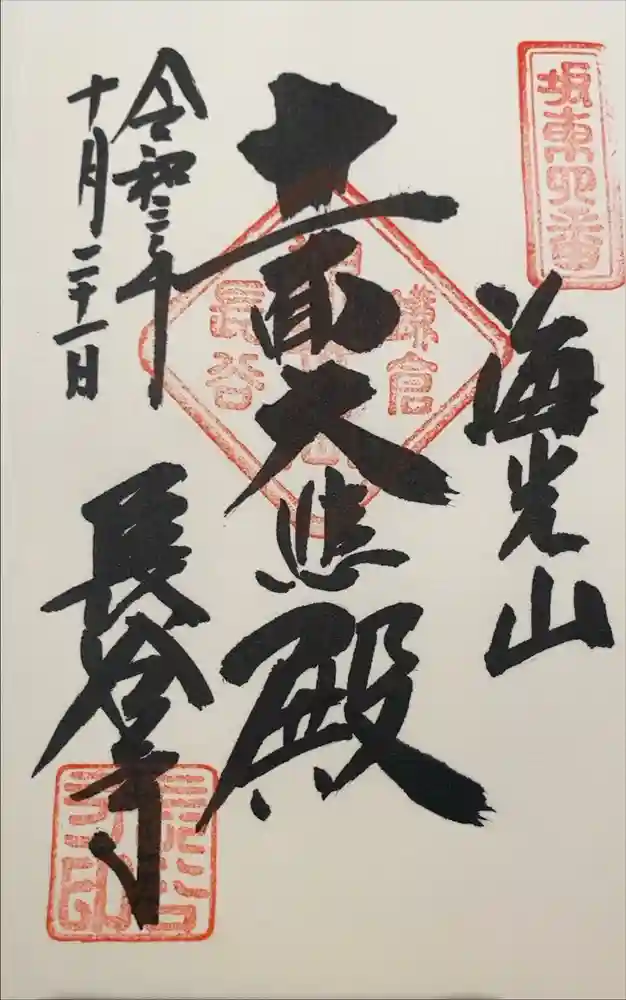 坂東四番
海光山
十一面大悲殿
鎌倉
長谷
長谷寺
令和三年
十月二十一日